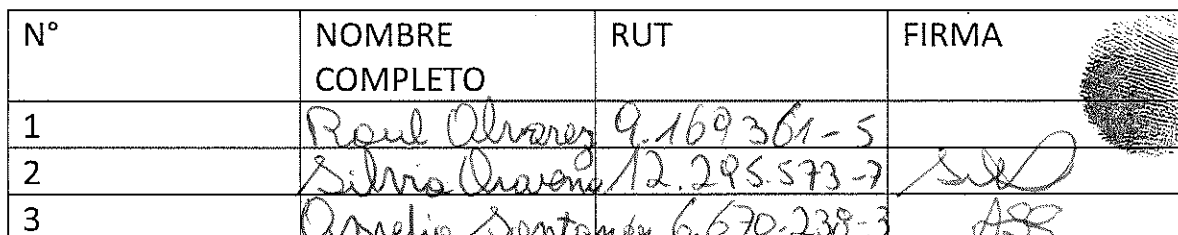 N° NOMBRE COMPLETO RUT FIRMA
1 Raul Alvarez 9.169361-5
2 Silvia Aravena 12.295.573-7
3 Santander 6.670-238-3